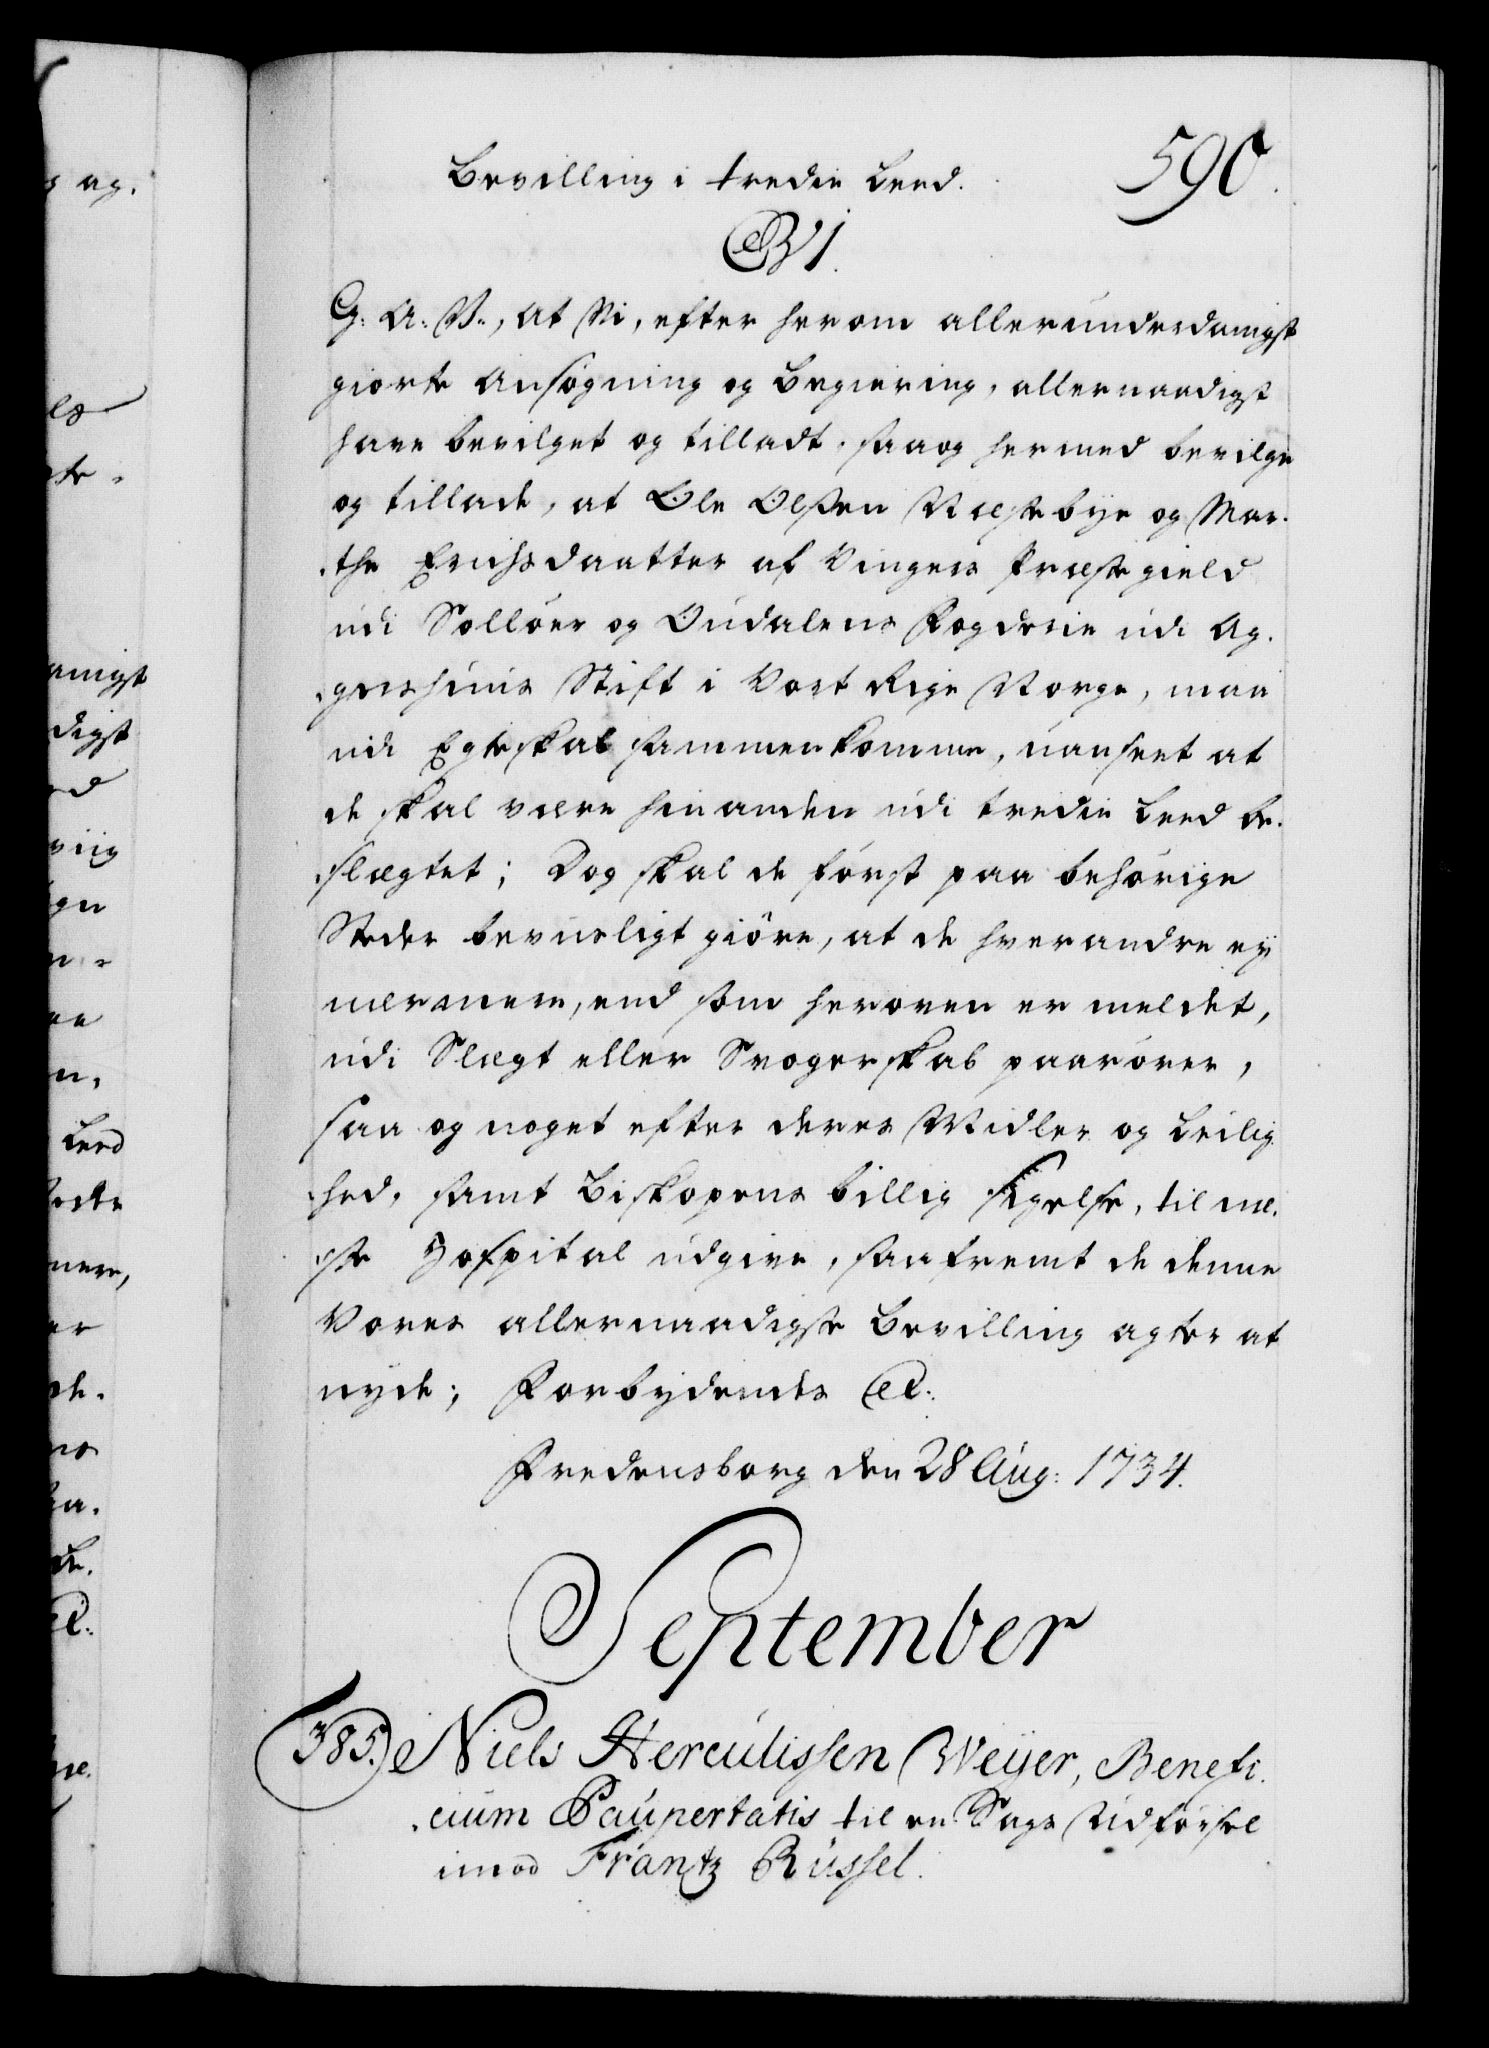 590.
Bevilling i tredie Leed.
C 6.
G: A: V:, at Vi, efter herom allerunderdanigst
giorte Ansøgning og Begiering, allernaadigst
have bevilget og tilladt, saa og hermed bevilge
og tillade, at Ole Olssen Næstebye og Mar-
the Erichsdaatter af Vingers Præstegield
udi Solløer og Oudalens Fogderie udi Ag-
gershuus Stift i Vort Rige Norge, maa
udi Egteskab sammenkomme, uanseet at
de skal være hinanden udi tredie Leed be-
slægtet; Dog skal de først paa behørige
Steder beviisligt giøre, at de hverandre ey
nærmere, end som heroven er meldet,
udi Slægt eller Svogerskab paarører,
saa og noget efter deres Midler og Leilig-
hed, samt Biskopens billig Sigelse, til næ-
ste Hospital udgive, saafremt de denne
Vores allernaadigste Bevilling agter at
nyde; Forbydendes etc:
Fredensborg den 28 Aug: 1734.
September
385. Niels Herculissen Weyer, Benefi-
cium Paupertatis til en Sags Udførsel
imod Frantz Russel.